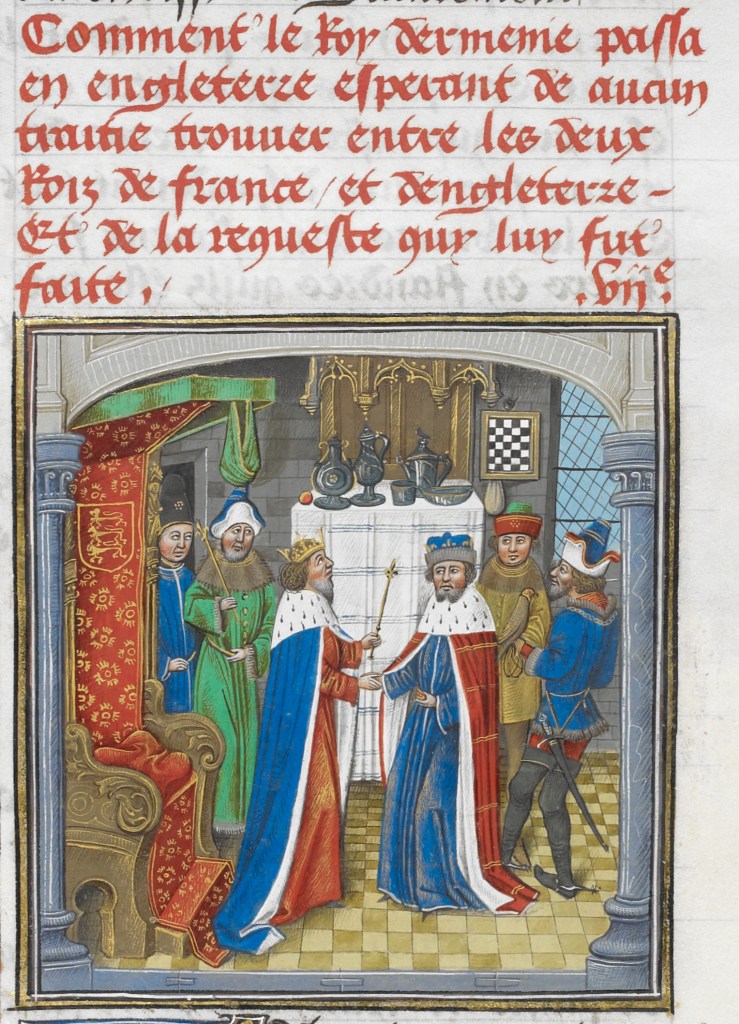 Comment le Roy dermenie passa
en engleterre esperant de aucun
traitie trouver entre les deux
Rois de france / et dengleterre -
Et de la requeste quy luy fut
faite , .vije.